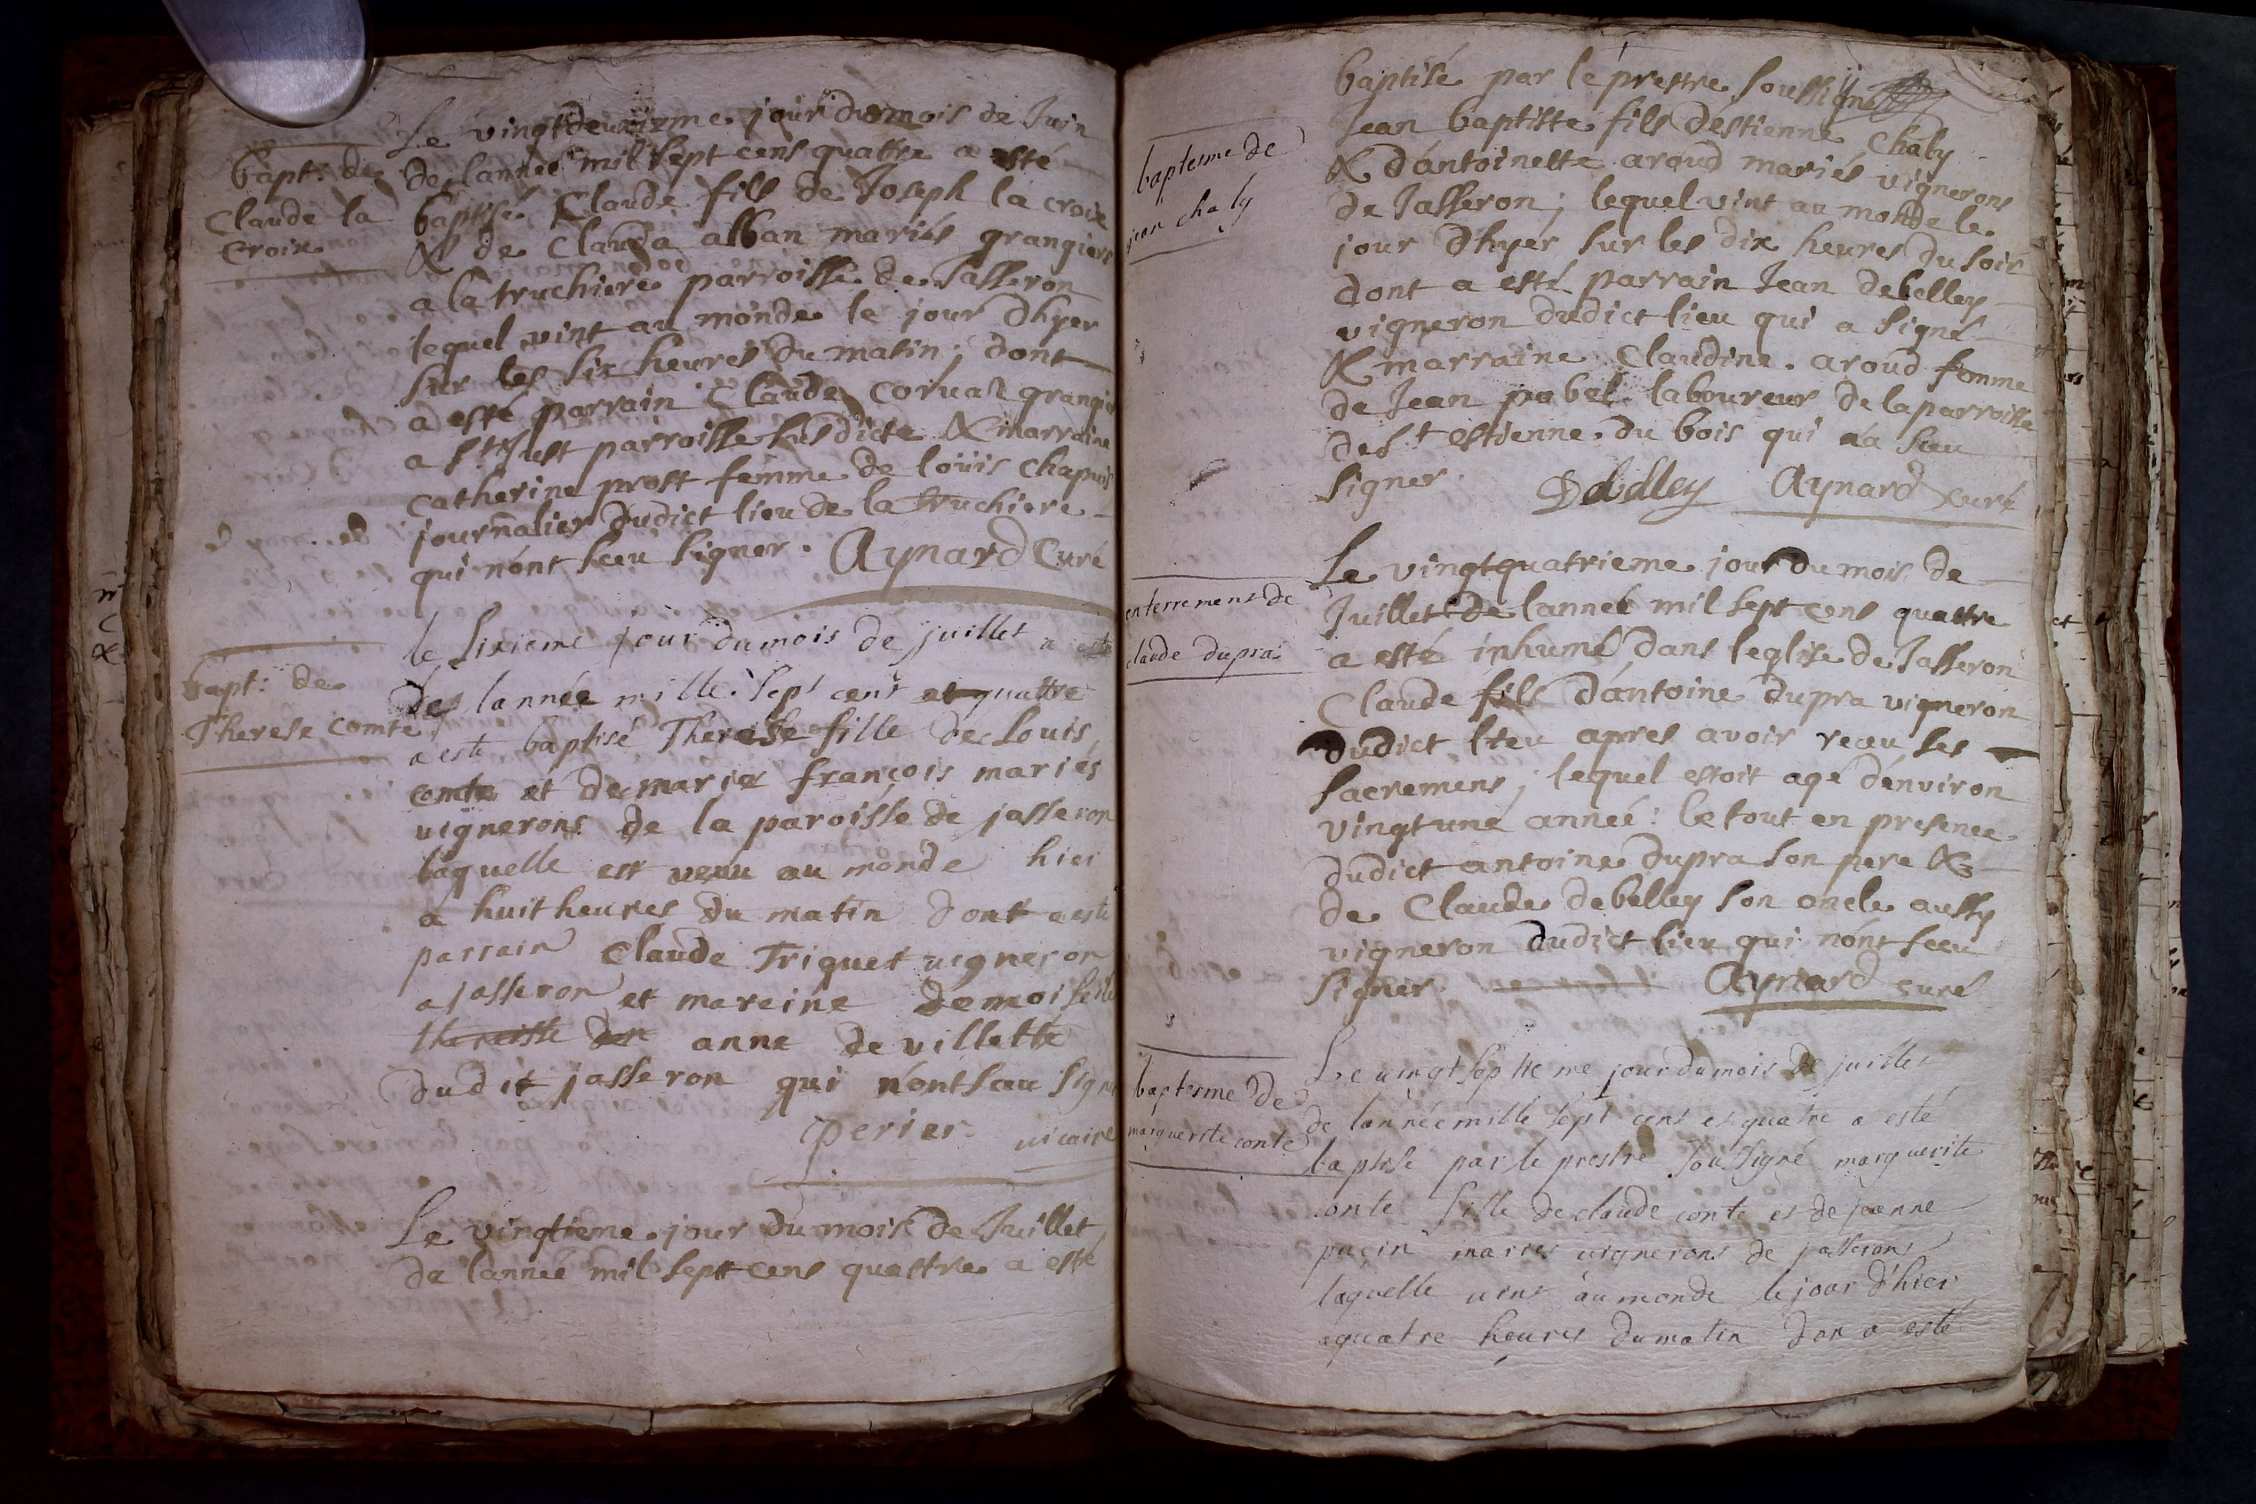 Le vingtdeuxieme jour du mois de Juin
bapt: de
Claude la
croix
de lannee mil sept cens quattre a esté
baptisé Claude fils de Joseph la croix
& de Clauda alban mariés grangiers
a la truchiere parroisse de Jasseron
lequel vint au monde le jour Dhyer
sur les six heures du matin; dont
a esté parrain Claude grangier
a parroisse susdicte & marraine
Catherine prost femme de loüis Chapuis
journalier dudict lieu de la truchiere
qui nónt sceu signer. Aynard Curé
le sixieme jour du mois de juillet a esté
bapt: de
Therese comte
de lannée mille sept cens et quattre
a esté baptisé Therese fille de Louis
comte et de marie françois mariés
vignerons de la paroisse de jasseron
laquelle est venu au monde hier
a huit heures du matin dont a esté
parrain Claude Triquet vigneron
a jasseron et mareine demoiselle
anne de villette
dudit jasseron qui nont sau signe
perier vicaire
Le vingtieme jour du mois de Juillet
de lannee mil sept cens quattre a esté
baptisé par le prestre soussigné
baptesme de
jean chaly
Jean baptiste fils destienne Chaly
& dántoinette aroud mariés vignerons
de Jasseron; lequel vint au monde le
jour Dhyér sur les dix heures du soir
dont a esté parrain Jean debelley
vigneron dudict lieu qui a signé
& marraine Claudine aroud femme
de Jean pabel laboureur de la parroisse
de St estienne du bois qui na sceu
signer. Debelley Aynard curé
Le vingtquatrieme jour du mois de
enterrement de
claude dupra
Juillet de lannee mil sept cens quattre
a esté inhumé dans leglise de Jasseron
Claude fils dántoine dupra vigneron
dudict lieu apres avoir receu ses
sacremens; lequel estoit agé dénviron
vingtune année: le tout en presence
dudict antoine dupra son pere &
de Claude debelley son oncle aussy
vigneron dudict lieu qui nónt sceu
signer Aynard curé
Le vingt septieme jour du mois de juillet
baptesme de
marguerite conte
de lannée mille sept cens et quatre a esté
baptisé par le prestre soussigné marguerite
conte fille de claude conte et de jeanne
puçin mariés vignerons de jasserons
laquelle vint au monde le jour d'hier
a quatre heures du matin don a esté